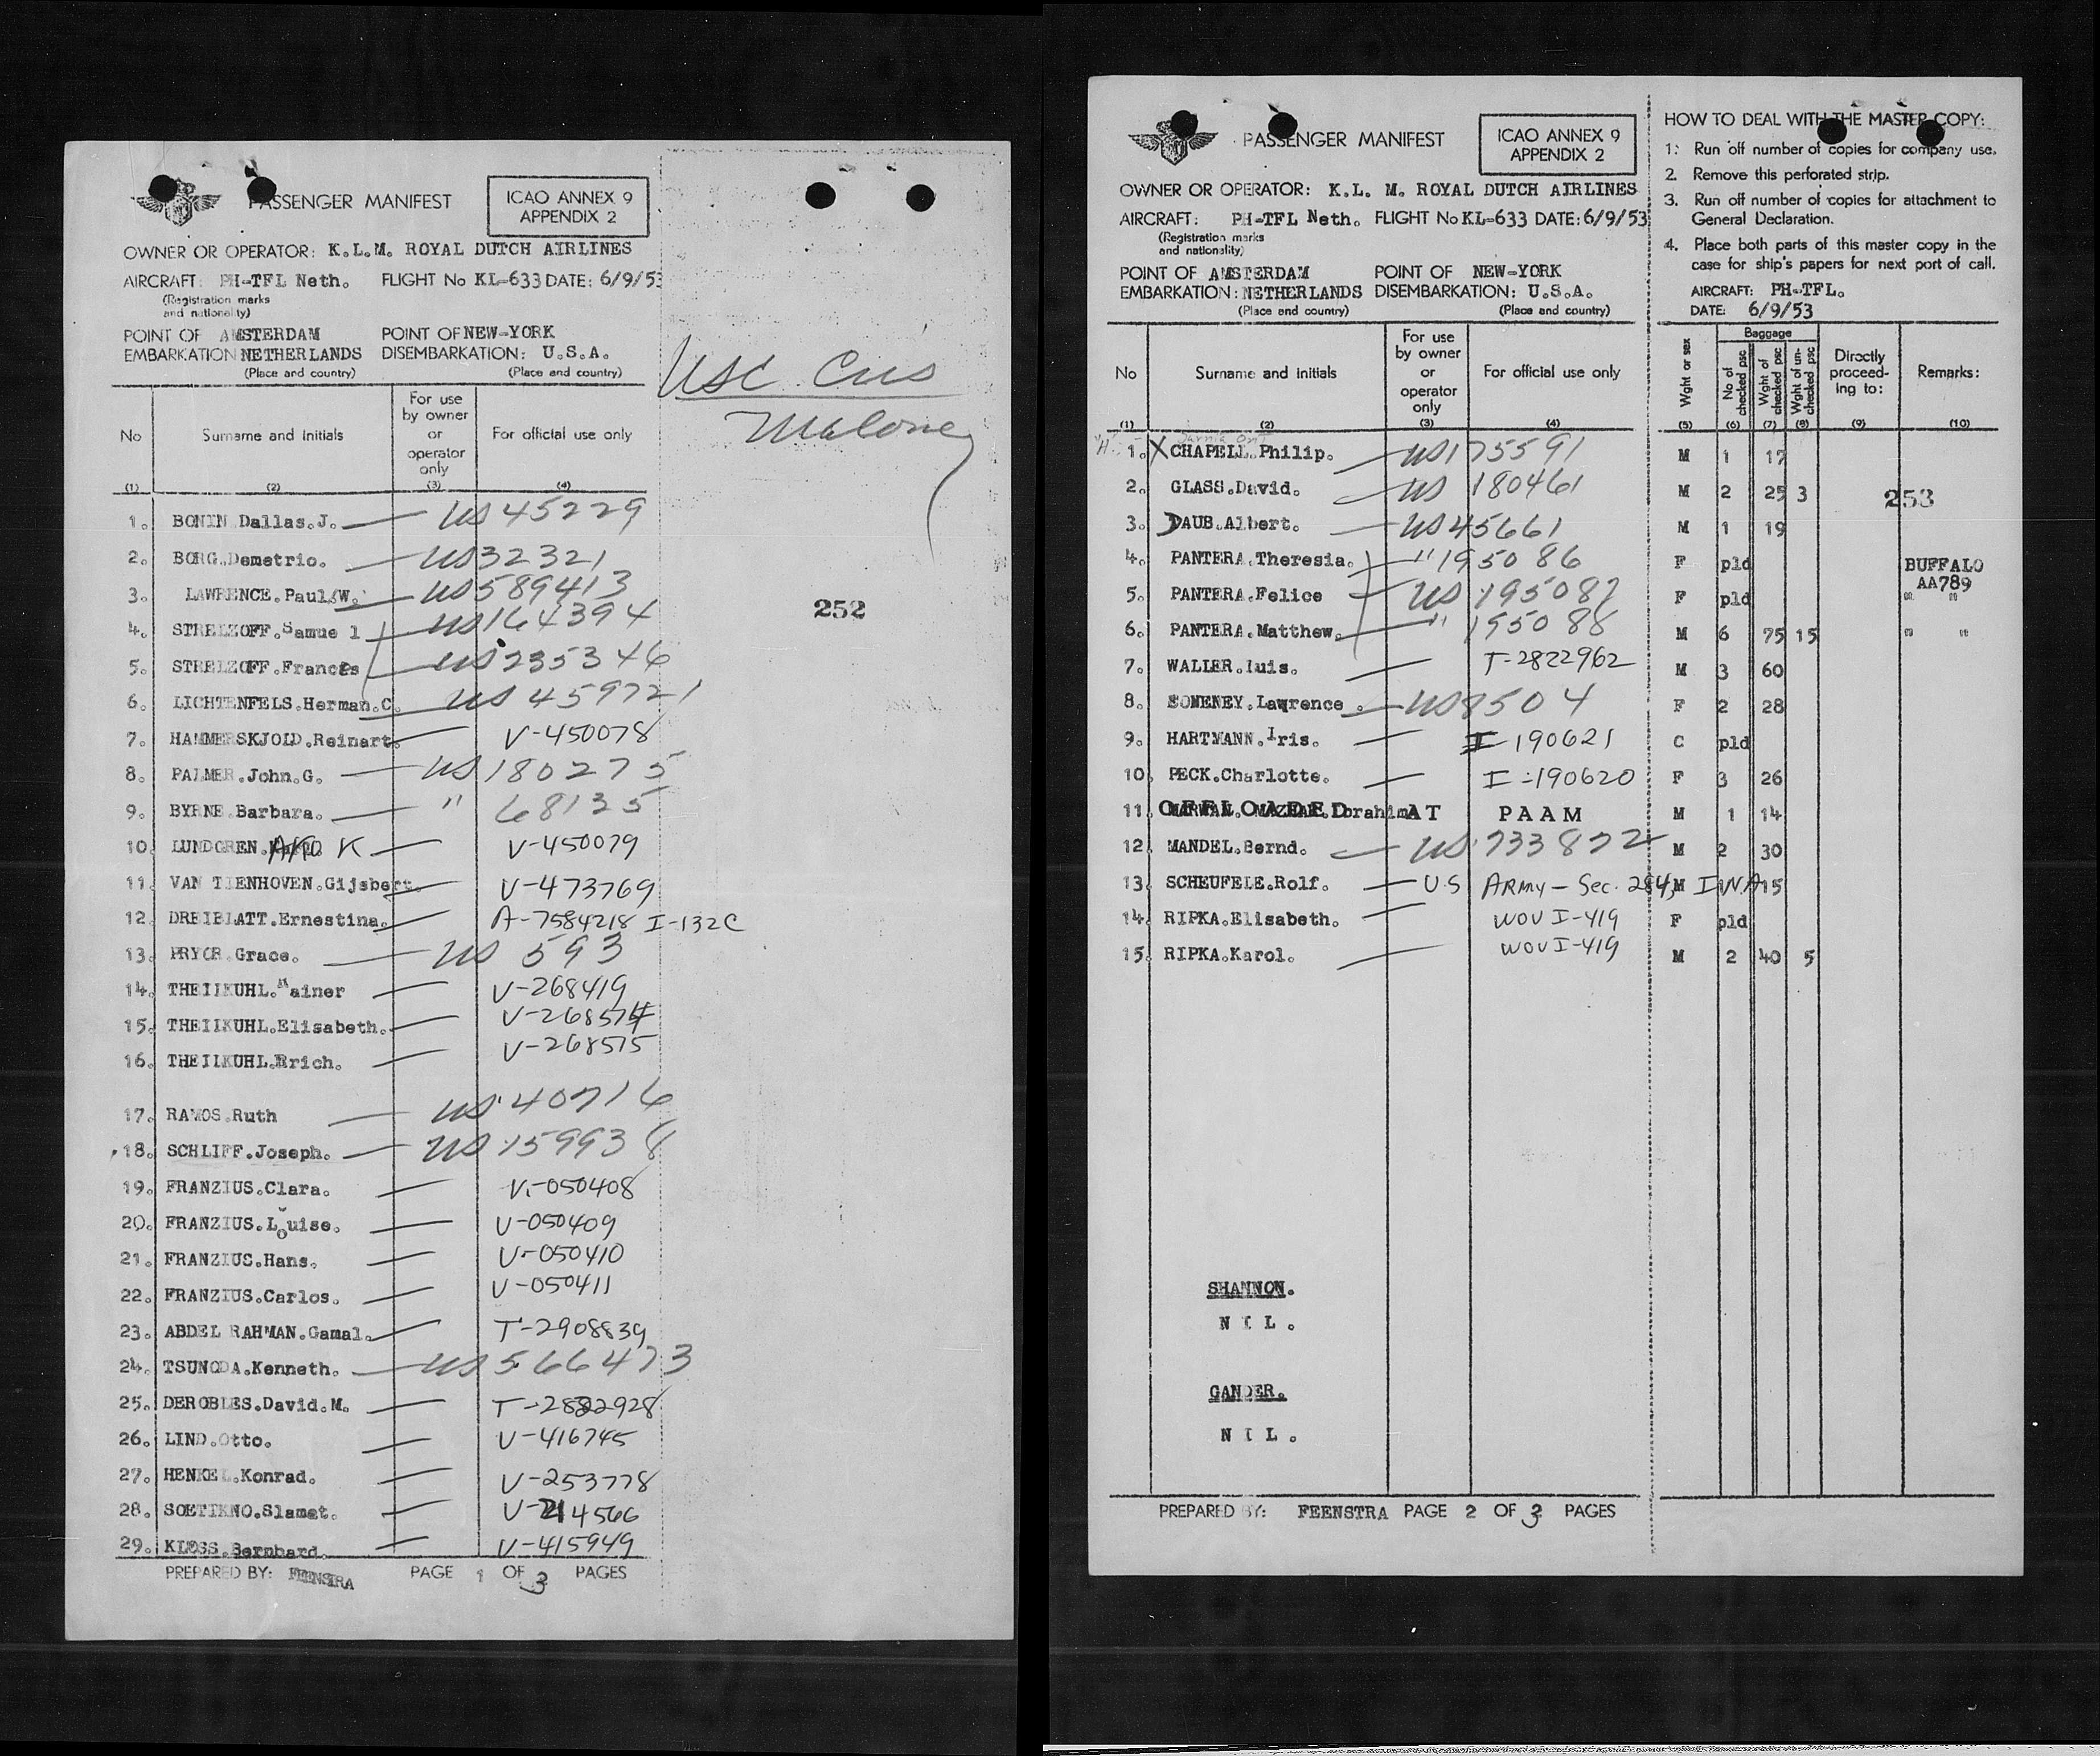 PASSENGER MANIFEST
ICAO ANNEX 9
APPENDIX 2
OWNER OR OPERATOR: K.L.M. ROYAL DUTCH AIRLINES
AIRCRAFT: PH-TFL Neth. FLIGHT No KL-633 DATE: 6/9/53
(Registration marks
and nationality)
POINT OF AMSTERDAM POINT OF NEW-YORK
EMBARKATION NETHERLANDS DISEMBARKATION: U.S.A.
(Place and country) (Place and country)
Malone
No Surname and initials For use by owner or operator only For official use only
(1) (2) (3) (4)
1. BONIN Dallas.J. US 45229
2. BORG.Demetrio. US 32321
3. LAWRENCE.Paul.W. US 589413
4. STRELZOFF.Samue l US 164394
252
5. STRELZOFF.Frances US 235346
6. LICHTENFELS.Herman.C. US 459721
7. HAMMERSKJOLD.Reinart. V-450078
8. PALMER.John.G. US 180275
9. BYRNE.Barbara. " 68135
10. LUNDGREN. K V-450079
11. VAN TIENHOVEN.Gijsbert. V-473769
12. DREIBLATT.Ernestina. A-7584218 I-132C
13. PRYOR.Grace. US 593
14. THEILKUHL. ainer V-268419
15. THEILKUHL.Elisabeth. V-268574
16. THEILKUHL.Erich. V-268575
17. RAMOS.Ruth US 40716
18. SCHLIFF.Joseph. US 159938
19. FRANZIUS.Clara. V-050408
20. FRANZIUS.Louise. V-050409
21. FRANZIUS.Hans. V-050410
22. FRANZIUS.Carlos. V-050411
23. ABDEL RAHMAN.Gamal. T-2908839
24. TSUNODA.Kenneth. US 566473
25. DEROBLES.David.M. T-2882928
26. LIND.Otto. V-416745
27. HENKEL.Konrad. V-253778
28. SOETIKNO.Slamet. V-214566
29. KLOSS.Bernhard. V-415949
PREPARED BY: FEENSTRA PAGE 1 OF 3 PAGES
PASSENGER MANIFEST
ICAO ANNEX 9
APPENDIX 2
OWNER OR OPERATOR: K.L. M. ROYAL DUTCH AIRLINES
AIRCRAFT: PH-TFL Neth. FLIGHT No KL-633 DATE: 6/9/53
(Registration marks
and nationality)
POINT OF AMSTERDAM POINT OF NEW-YORK
EMBARKATION: NETHERLANDS DISEMBARKATION: U.S.A.
(Place and country) (Place and country)
HOW TO DEAL WITH THE MASTER COPY:
1. Run off number of copies for company use.
2. Remove this perforated strip.
3. Run off number of copies for attachment to
General Declaration.
4. Place both parts of this master copy in the
case for ship's papers for next port of call.
AIRCRAFT: PH-TFL.
DATE: 6/9/53
No Surname and initials For use by owner or operator only For official use only Wght or sex Baggage No of checked psc Wght of checked psc Wght of un-checked psc Directly proceed-ing to: Remarks:
(1) (2) (3) (4) (5) (6) (7) (8) (9) (10)
1. X CHAPELL.Philip. US 175591 M 1 17
2. GLASS.David. US 180461 M 2 25 3
253
3. DAUB.Albert. US 45661 M 1 19
4. PANTERA.Theresia. " 195086 F pld BUFFALO
AA789
5. PANTERA.Felice US 195087 F pld " "
6. PANTERA.Matthew. " 195088 M 6 75 15 " "
7. WALLER.luis. T-2822962 M 3 60
8. SOMENEY.Lawrence. US 8504 F 2 28
9. HARTMANN.Iris. I-190621 C pld
10. PECK.Charlotte. I-190620 F 3 26
11. OFFLOADED Ibrahim. AT PAAM M 1 14
12. MANDEL.Bernd. US 733872 M 2 30
13. SCHEUFELE.Rolf. U.S ARMY - Sec. 284, INA M 15
14. RIPKA.Elisabeth. WOV I-419 F pld
15. RIPKA.Karol. WOV I-419 M 2 40 5
SHANNON.
N I L .
GANDER.
N I L .
PREPARED BY: FEENSTRA PAGE 2 OF 3 PAGES